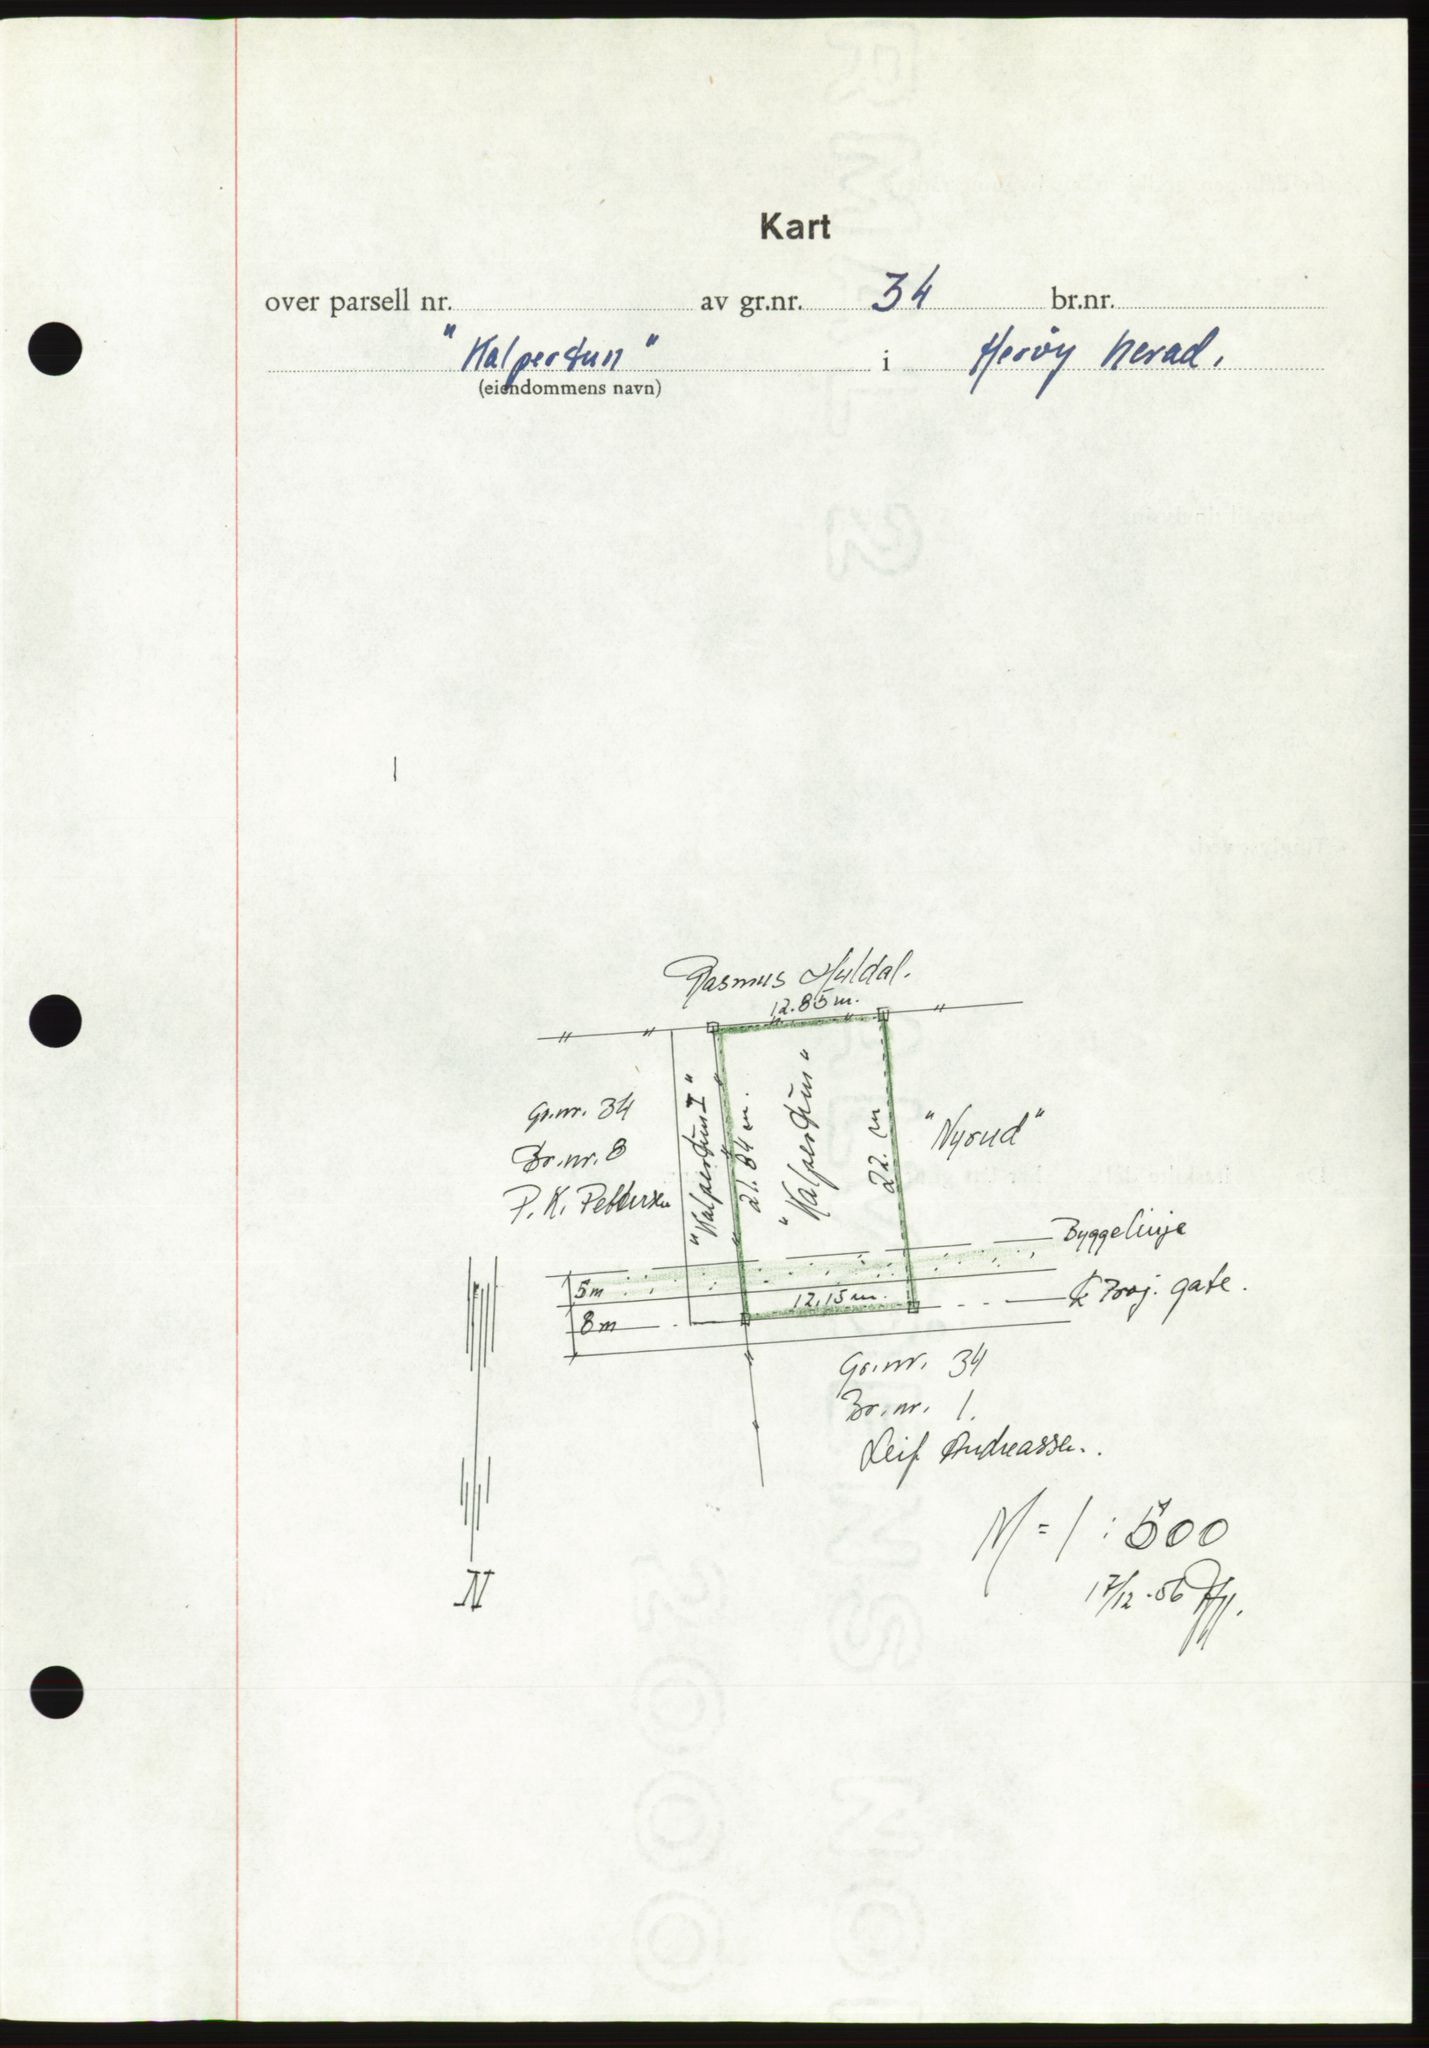 Kart
over parsell nr. av gr.nr. 34 br.nr.
"Kalpertun" i Herøy herad.
(eiendommens navn)
Rasmus Myldal.
12.85 m.
Gr.nr. 34
Br.nr. 8
P. K. Pettersen
"Kalpertun I"
21.84 m.
"Kalpertun"
22. m
"Nyrud"
Byggelinje
5m
12,15 m.
Proj. gate.
8m
Gr.nr. 34
Br.nr. 1.
Leif Andreassen.
M = 1 : 500
17/12 - 56
N